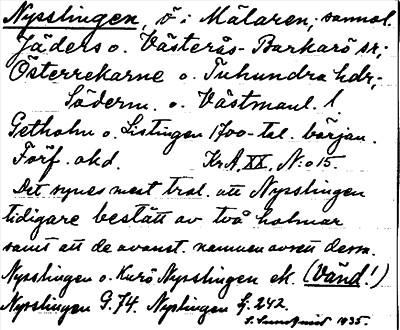 Nysslingen, ö i Mälaren, samnl.
Jäders o. Västerås-Barkarö sr,
Österrekarne o. Tuhundra hdr,
Söderm. o. Västmanl. l.
Getholm o. Listingen 1700-tal. början.
Förf. okd. KrA, XX, N:o 15.
Det synes mest trol. att Nysslingen
tidigare bestått av två holmar
samt att de ovanst. namnen avsett dem.
Nysslingen o. Kurö Nysslingen ek. (Vänd!)
Nysslingen G. 74. Nysslingen G. 242.
1935.